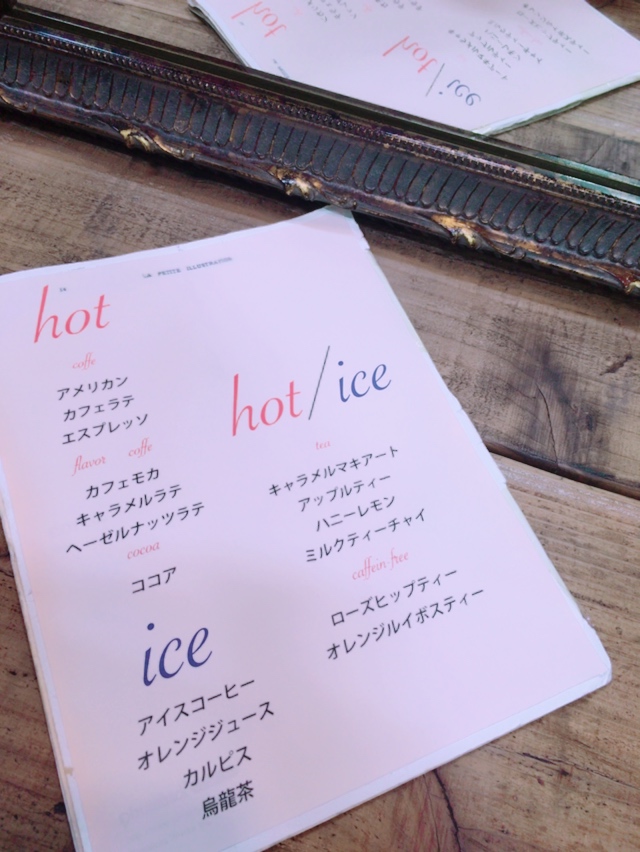 14
LA PETITE ILLUSTRATION
hot
coffe
アメリカン
カフェラテ
エスプレッソ
flavor coffe
カフェモカ
キャラメルラテ
ヘーゼルナッツラテ
cocoa
ココア
ice
アイスコーヒー
オレンジジュース
カルピス
烏龍茶
hot/ice
tea
キャラメルマキアート
アップルティー
ハニーレモン
ミルクティーチャイ
caffein-free
ローズヒップティー
オレンジルイボスティー